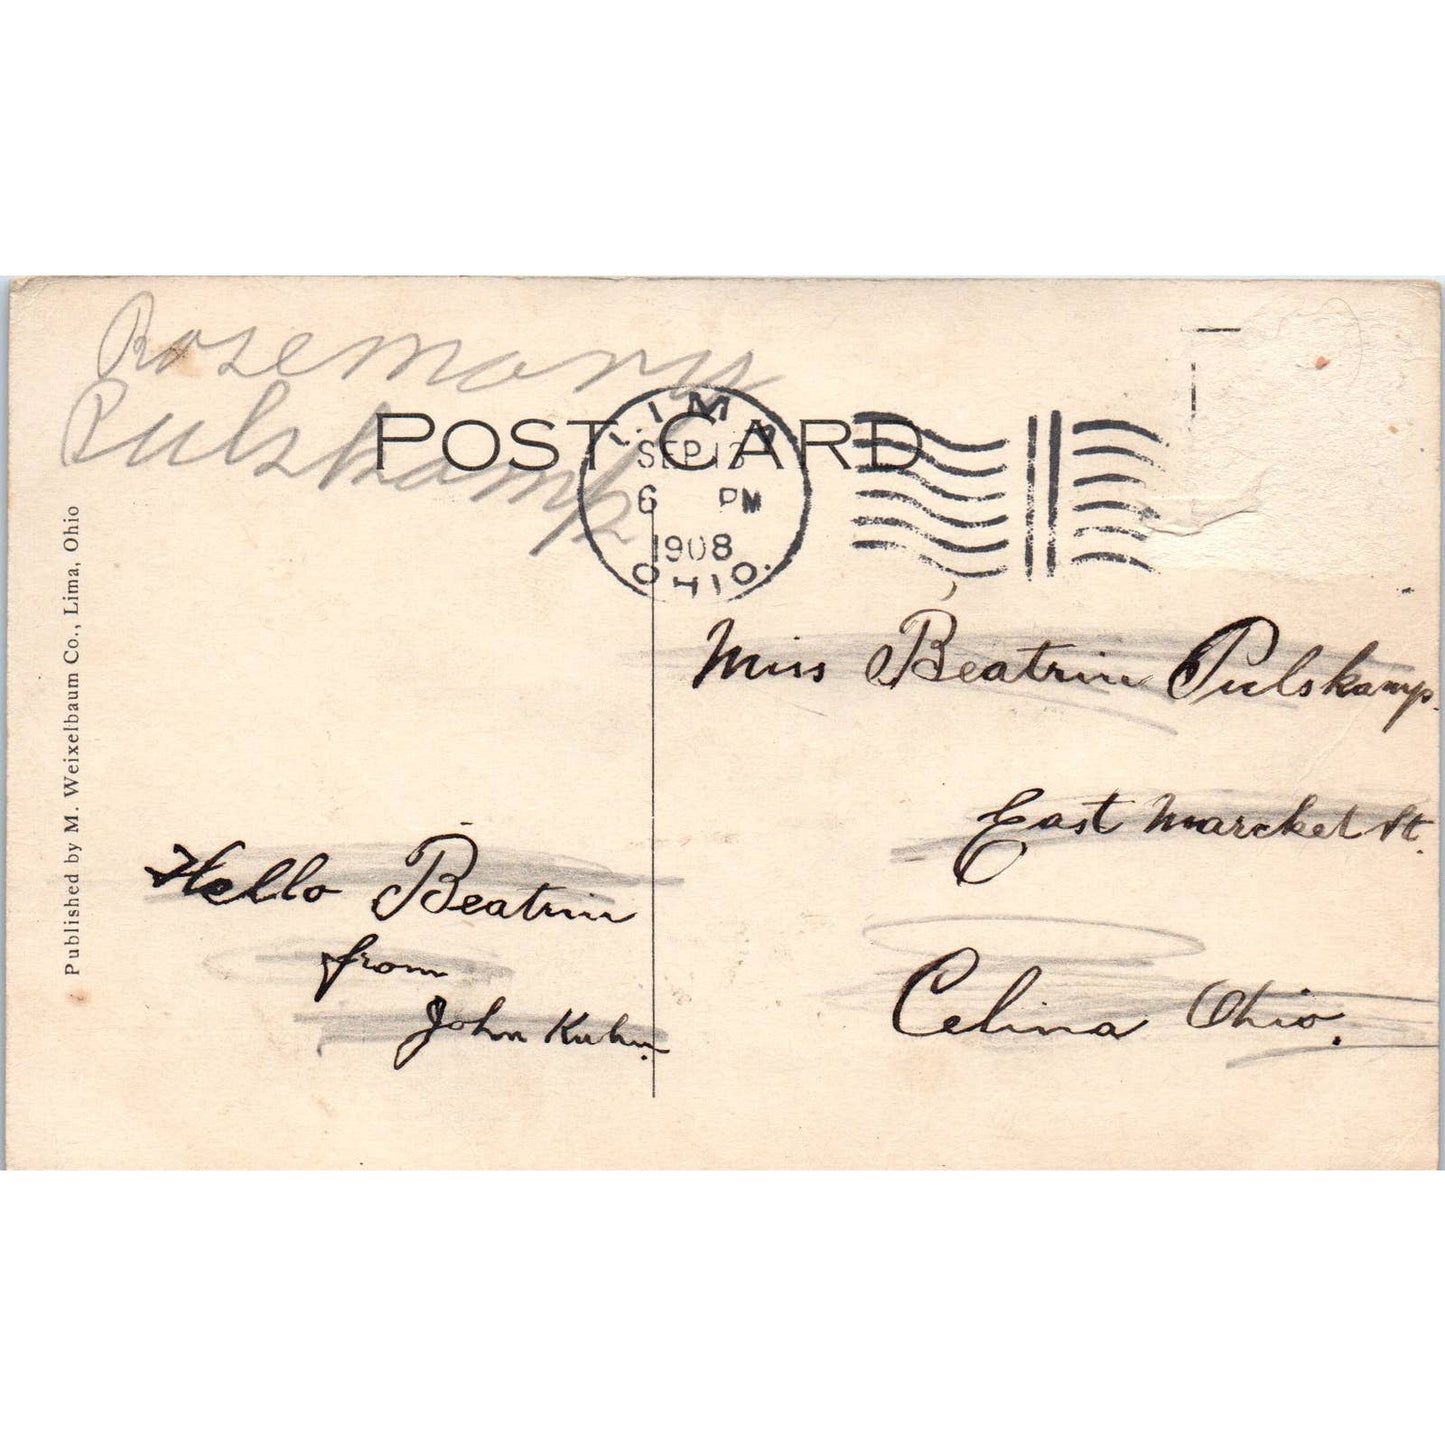 Rosemary
Pulskamp
POST CARD
LIMA
SEP 13
6 PM
1908
OHIO.
Published by M. Weixelbaum Co., Lima, Ohio
Miss Beatrin Pulskamp.
East Marcket St.
Celina Ohio.
Hello Beatrin
from
John Kuhn.